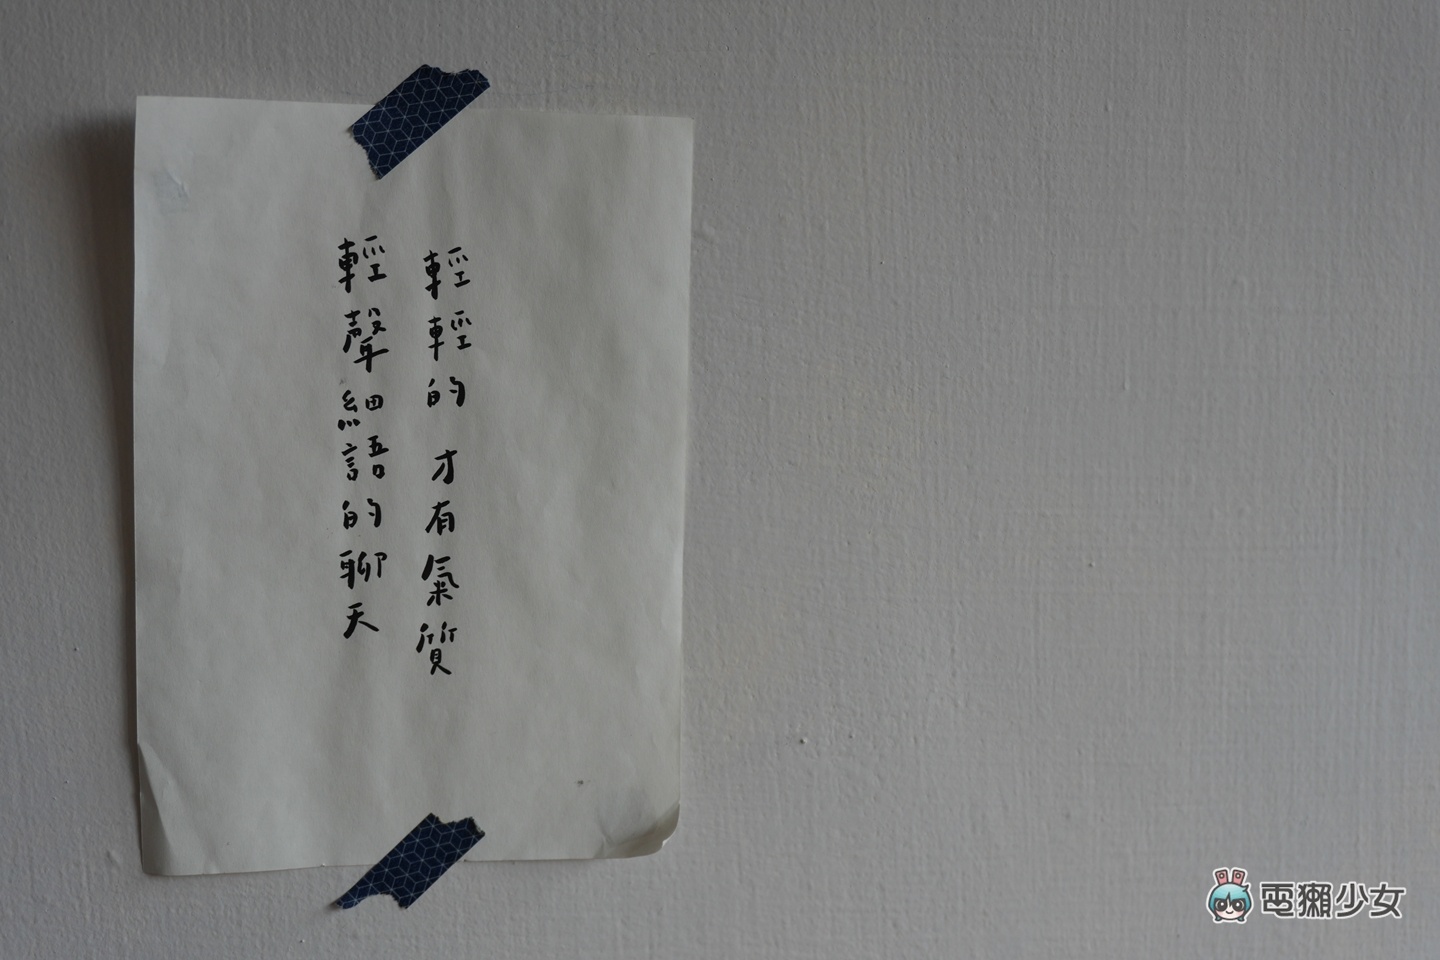 輕輕的 才有氣質
輕聲細語的聊天
電獺少女